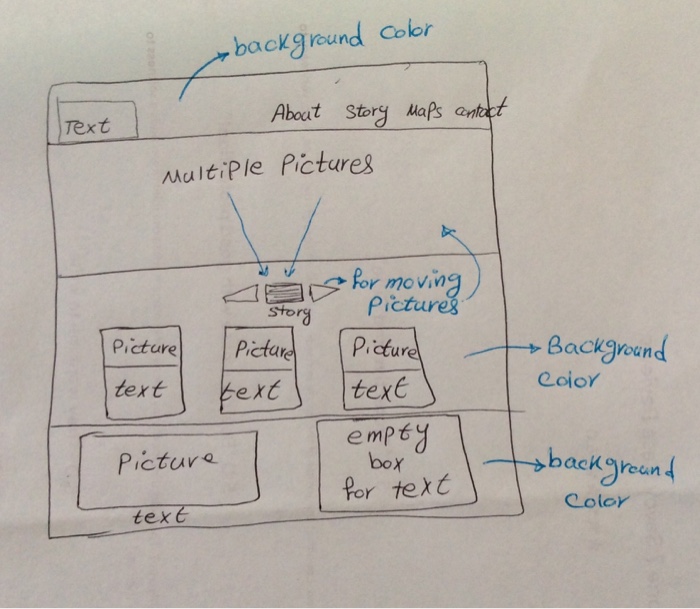 background color
Text
About Story Maps contact
Multiple Pictures
for moving
Pictures
story
Picture
text
Picture
text
Picture
text
Background
color
Picture
text
empty
box
for text
background
color